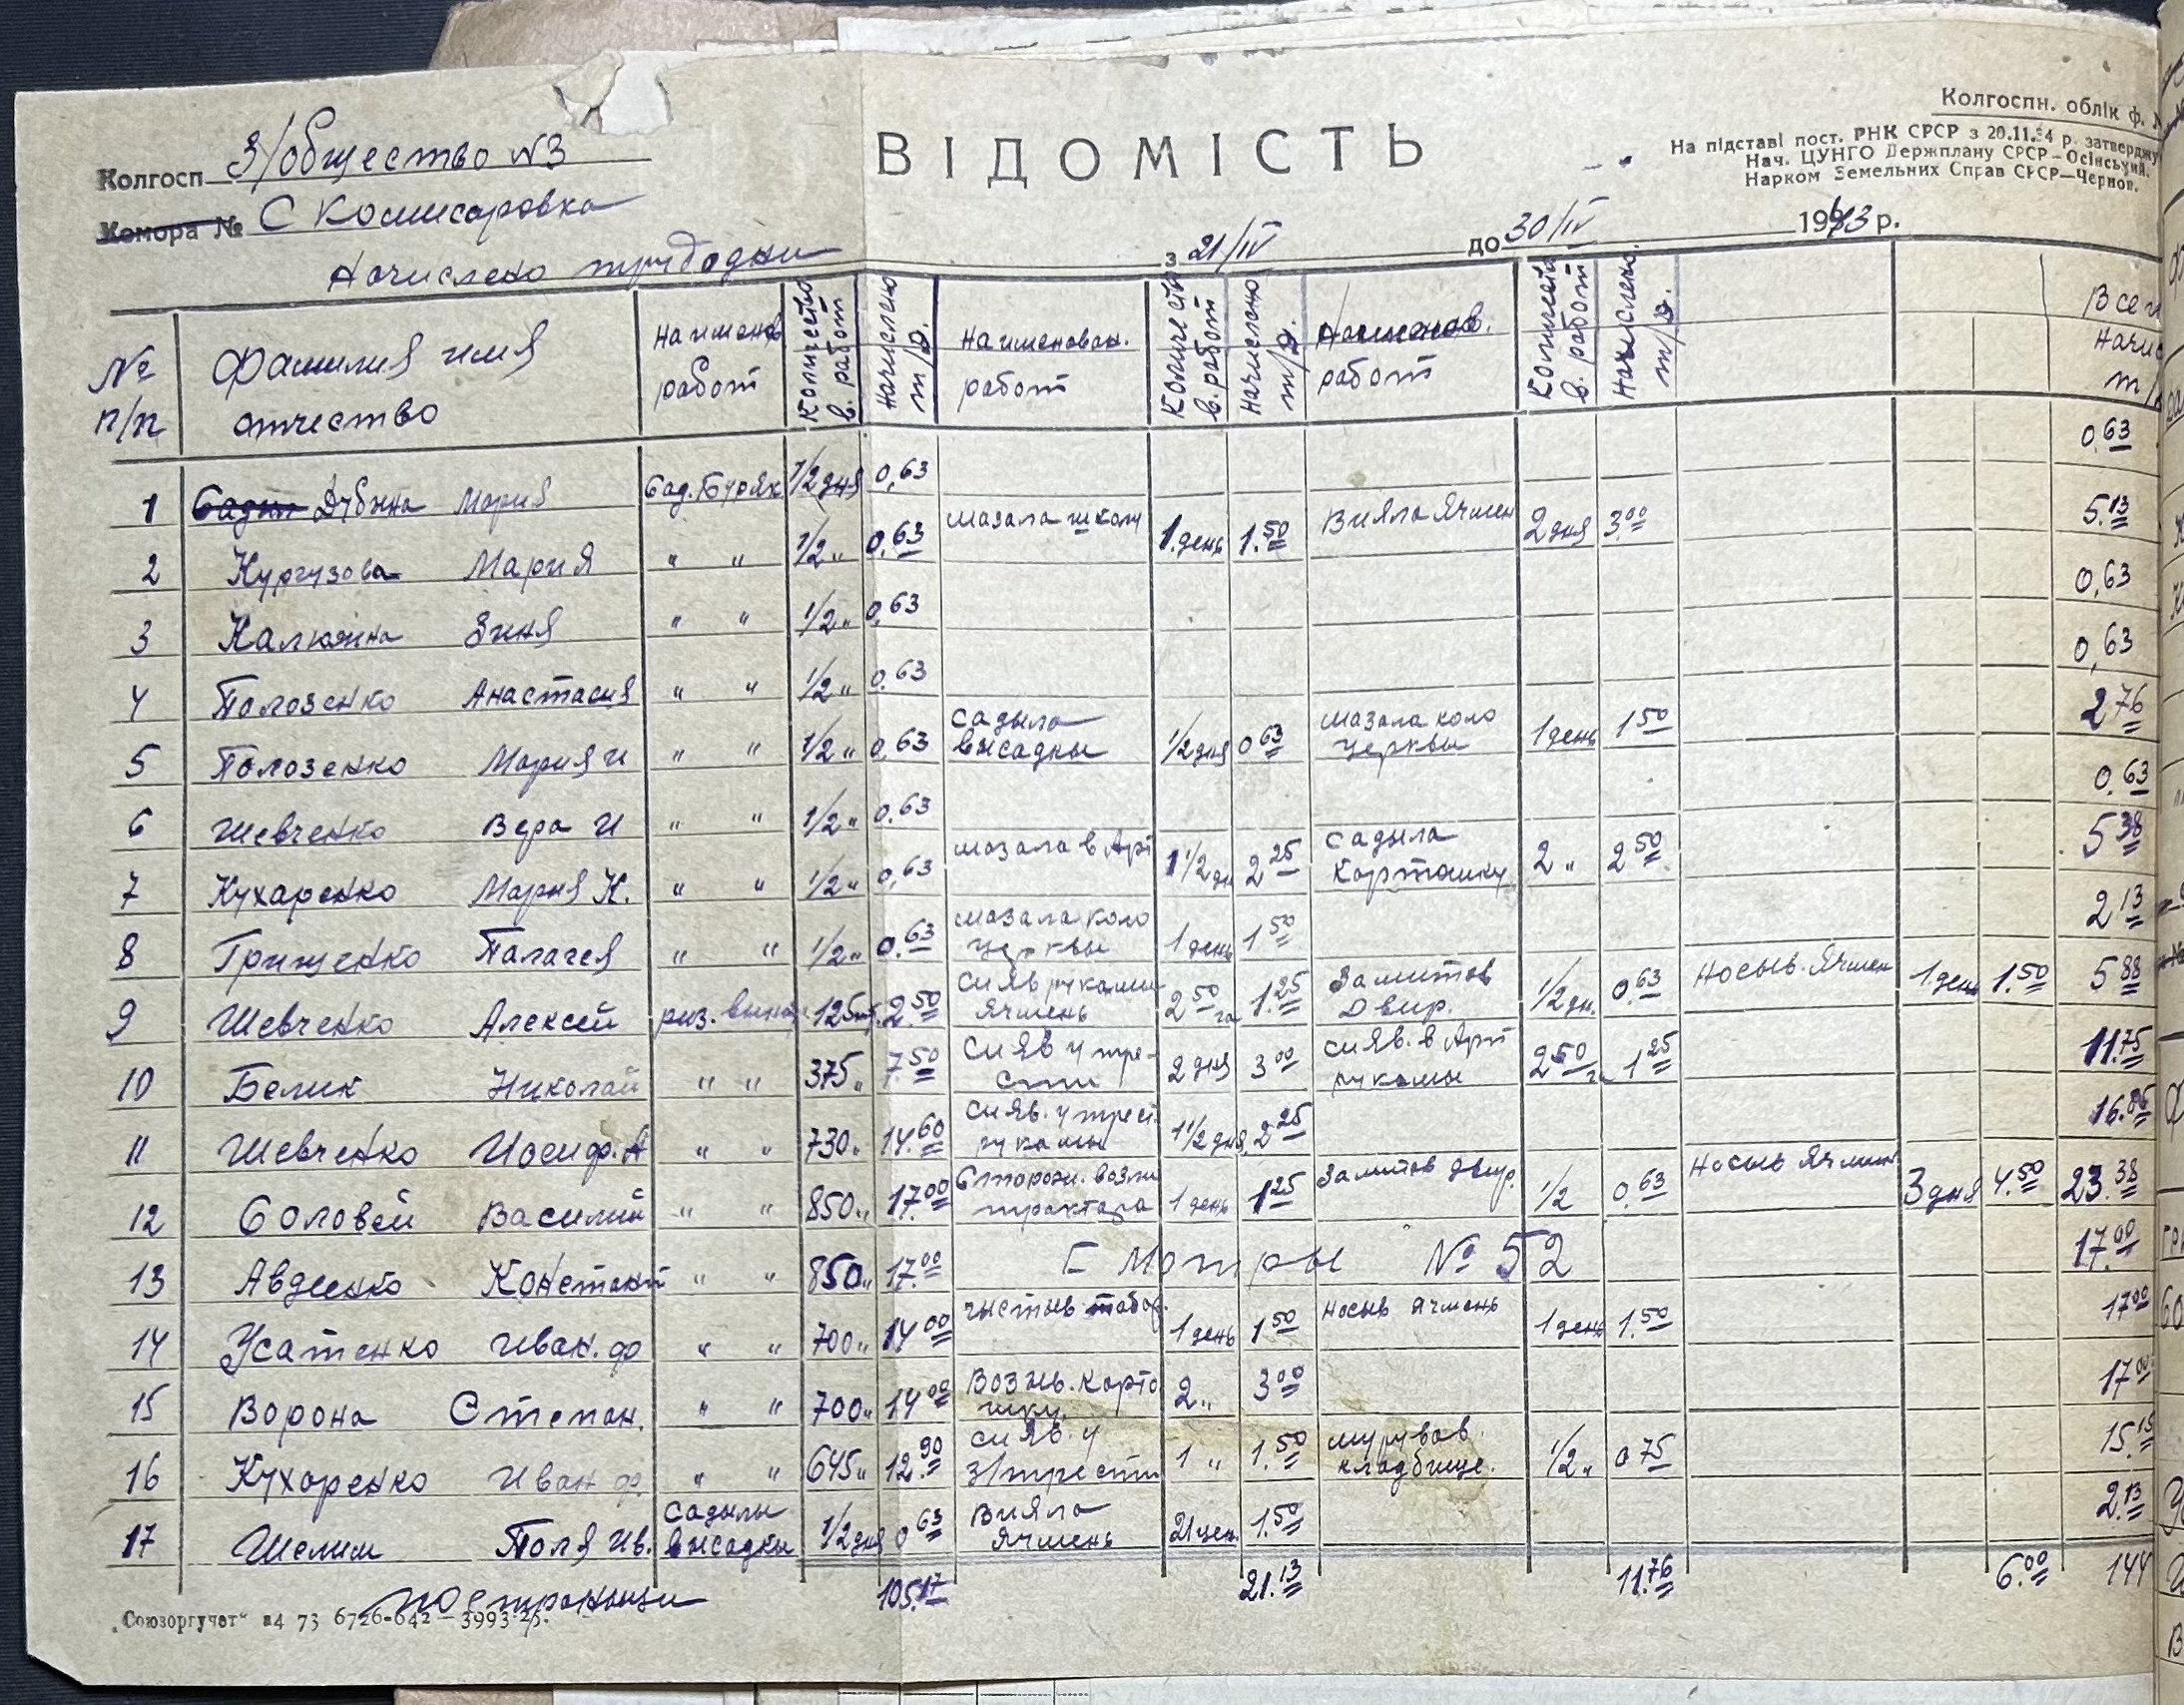 Колгоспн. облік ф.
На підставі пост. РНК СРСР з 20.11.34 р. затверджу
Нач. ЦУНГО Держплану СРСР — Осінський.
Нарком Земельних Справ СРСР—Чернов.
ВІДОМІСТЬ
Колгосп З/общество №3
Комора № С Комисаровка
з 21/IV до 30/IV 1943 р.
Начислено трудодни
№ п/п Фамилия имя отчество Наименов работ Количество в. работ Начислено т/д. Наименован. работ Количеств в. работ Начислено т/д. Наименов. работ Количеств в. работ Начислено. т/д. Всег Начис т/
1 Дубина Мария Сад. Буряк 1/2 дня 0,63 0.63
2 Кургузова Мария " " 1/2 " 0.63 мазала школу 1.день 1.50 Вияла Ячмен 2 дня 3.00 5.13
3 Калюжна Зиня " " 1/2 " 0.63 0,63
4 Полозенко Анастасия " " 1/2 " 0.63 0,63
5 Полозенко Мария И " " 1/2 " 0.63 садыла высадкы 1/2 дня 0 63 мазала коло церквы 1 день 1 50 2 76
6 Шевченко Вера И " " 1/2 " 0.63 0.63
7 Кухаренко Мария К. " " 1/2 " 0,63 мазала в Арт 1 1/2 дн 2 25 садыла Картошку 2 " 2 50 5 38
8 Грищенко Палагея " " 1/2 " 0.63 мазала коло церквы 1 день 1 50 2 13
9 Шевченко Алексей риз. 125 2.50 сияв рукамы Ячмень 2 50 га 1.25 Замитав Двир. 1/2 дн. 0.63 Носыв. Ячмен 1 день 1.50 5 88
10 Белик Николай " " 375 " 7.50 сияв у тре- сти 2 дня 3 00 сияв. в Арт рукамы 2 50 га 1 25 11.75
11 Шевченко Иосиф. А " " 730 " 14.60 сияв. у трест рукамы 1 1/2 дня 2 25 16.85
12 Соловей Василий " " 850 " 17.00 Сторож. возли трактора 1 день 1 25 Замитав двир. 1/2 0.63 Носыв Ячмин 3 дня 4.50 23.38
13 Авдеенко Констант " " 850 " 17.00 № 52 17.00
14 Усатенко Иван. ф " " 700 " 14 00 чыстыв табор. 1 день 1 50 носыв ячмень 1 день 1.50 17 00
15 Ворона Степан. " " 700 " 14 00 Возыв. карто шку. 2 " 3 00 17 00
16 Кухаренко Иван ф. " " 645 " 12.90 сияв. у з/трести 1 " 1.50 мурував. кладбище. 1/2 " 0 75 15.15
17 Шелиш Поля Ив. Садылы высадкы 1/2 дня 0 63 Вияла ячмень 2 цен. 1.50 2.13
по странице 105.17 21.13 11.76 6.00 144
„Союзоргучет“ 24 73 6726-642—3993-25.